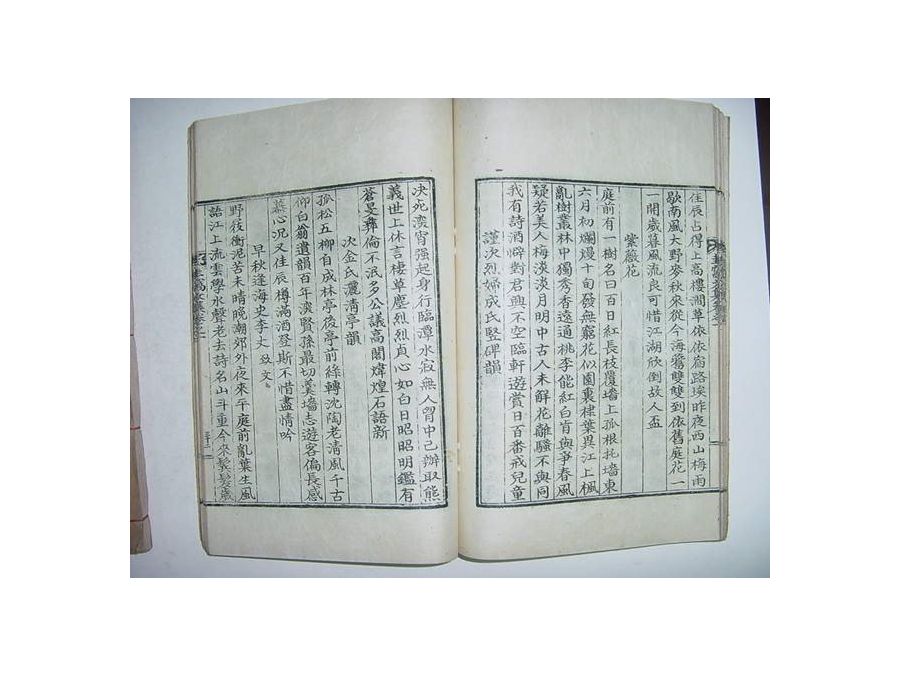 佳辰占得上高樓澗草依依宿路埃昨夜西山梅雨
歇南風大野麥秋來從今海鷰雙雙到依舊庭花一
一開歲暮風流良可惜江湖欣倒故人盃
紫薇花
庭前有一樹名曰百日紅長枝覆墻上孤根托墻東
六月初爛熳十旬發無窮花似園裏棣葉異江上楓
亂樹叢林中獨秀香遠通桃李能紅白肯與爭春風
疑若美人梅淡淡月明中古人未鮮花離騷不與同
我有詩酒僻對君興不空臨軒遊賞日百番戒兒童
謹次烈婦成氏竪碑韻
决死深宵强起身行臨潭水寂無人胃中已辦取熊
義世上休言棲草塵烈烈貞心如白日昭昭明鑑有
蒼旻彛倫不泯多公議高閣煒煌石語新
次金氏灑淸亭韻
孤松五柳自成林亭後亭前絲轉沈陶老淸風千古
仰白翁遺韻百年深賢孫最切羹墻志遊客偏長感
慕心况又佳辰樽滿酒登斯不惜盡情吟
早秋逢海史李丈致文
野筱衡泥苦未晴晩潮郊外夜來平庭前亂葉生風
語江上流雲學水聲老去詩名山斗重今來鬂髮